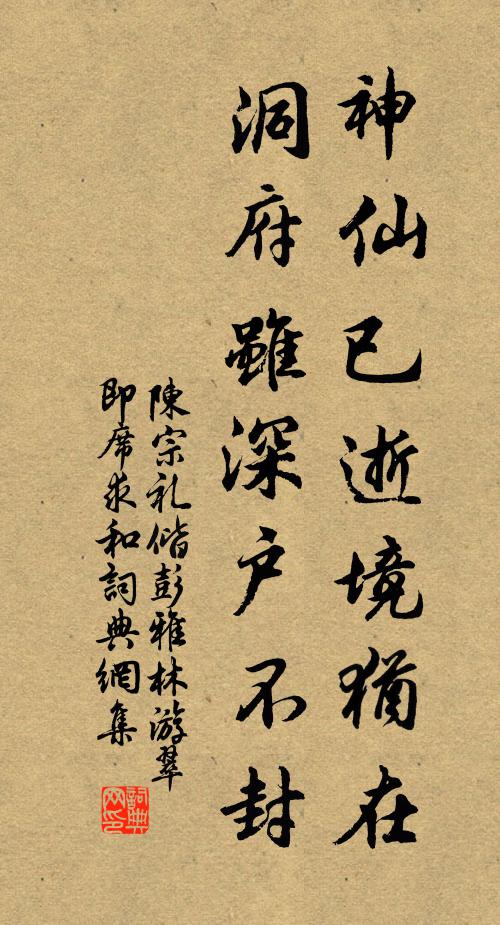 神仙已逝境猶在
洞府雖深户不封
陳宗礼偕彭雅林游翠
即席求和詞典網集
詞典網印